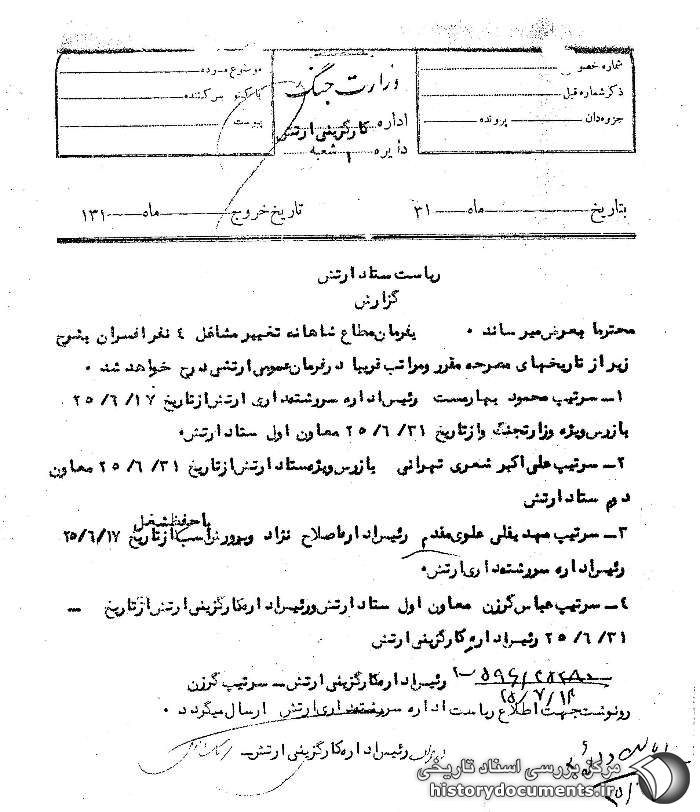 شماره خصوصی
ذکر شماره قبل
جزوه‌دان پرونده
وزارت جنگ
اداره کارگزینی ارتش
دایره ۱ شعبه
موضوع مسوده
پاکنویس کننده
پیوست
بتاریخ ماه ۳۱
تاریخ خروج ماه ۱۳۱
ریاست ستاد ارتش
گزارش
محترما بعرض میرساند ۰ بفرمان مطاع شاهانه تغییر مشاغل ۴ نفر افسران بشرح
زیر از تاریخهای مصرحه مقرر و مراتب قریبا در فرمان عمومی ارتشی درج خواهد شد ۰
۱ــ سرتیپ محمود بهارمست رئیس اداره سررشته‌داری ارتش از تاریخ ۱۷ /۶ /۲۵
بازرس ویژه وزارتجنگ و از تاریخ ۳۱ /۶ /۲۵ معاون اول ستاد ارتش۰
۲ــ سرتیپ علی اکبر شعری تهرانی بازرس ویژه ستاد ارتش از تاریخ ۳۱ /۶ /۲۵ معاون
دوم ستاد ارتش
با حفظ شغل
۳ــ سرتیپ مهدیقلی علوی مقدم رئیس اداره اصلاح نژاد و پرورش اسب از تاریخ ۲۵/۶/۱۷
رئیس اداره سررشته‌داری ارتش۰
۴ــ سرتیپ عباس گرزن معاون اول ستاد ارتش و رئیس اداره کارگزینی ارتش از تاریخ ــ
۳۱ /۶ /۲۵ رئیس اداره کارگزینی ارتش
رئیس اداره کارگزینی ارتش ــ سرتیپ گرزن
۲۵/۷/۱۸
رونوشت جهت اطلاع ریاست اداره سررشته‌داری ارتش ارسال میگردد ۰
رئیس اداره کارگزینی ارتش ــ
مرکز بررسی اسناد تاریخی
historydocuments.ir